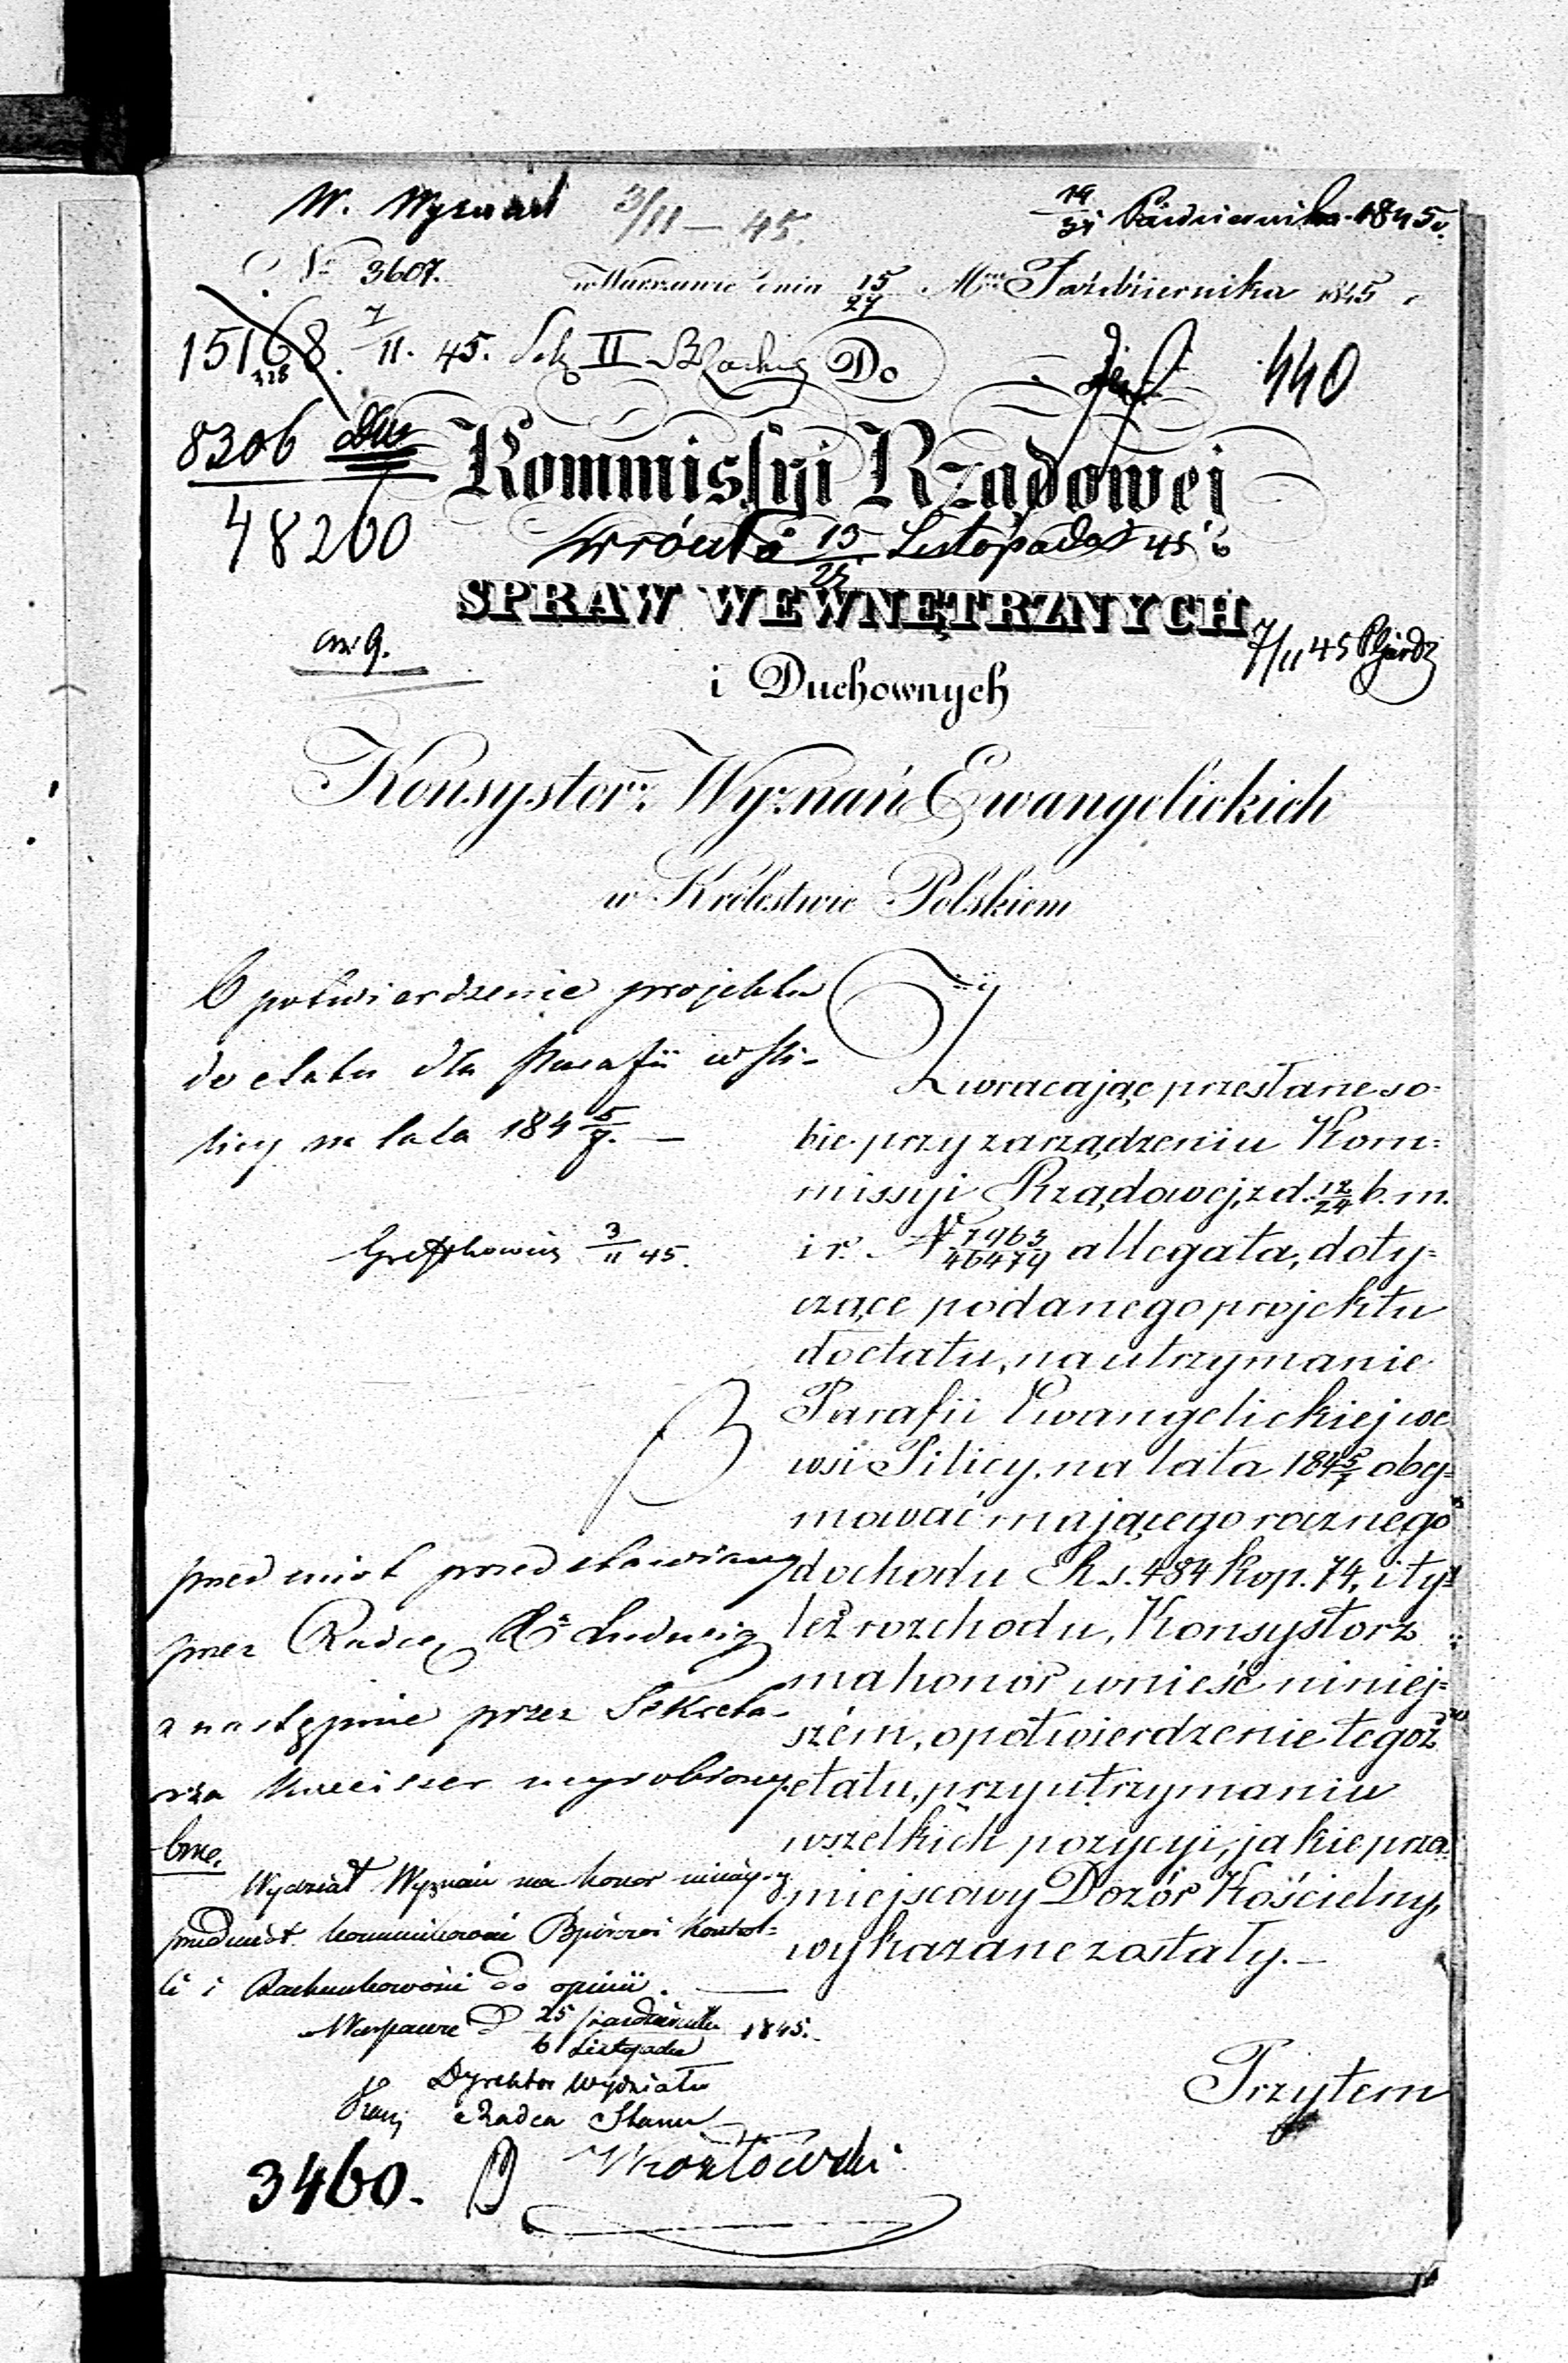 3/11 – 45.
19/31 Października 1845 r.
No 3607.
w Warszawie dnia 15/27 Mca Października 1845 r.
15168. 7/11. 45. Sek II
Do
440
8306
48260
Kommissyi Rządowej
wróciło 13/25 Listopada 45 r
SPRAW WEWNĘTRZNYCH
7/11 45
i Duchownych
Konsystorz Wyznań Ewangelickich
w Królestwie Polskiem
O potwierdzenie projektu
do etatu dla Parafii w Pi-
licy na lata 184 5/7. —
3/11 45.
Zwracając przesłane so-
bie przy zarządzeniu Kom-
missyi Rządowej, z d. 12/24 b. m.
i r. No 7963/46479 allegata, doty-
czące podanego projektu
do etatu, na utrzymanie
Parafii Ewangelickiej we
wsi Pilicy, na lata 184 5/7 obej-
mować mającego rocznego
dochodu Rs. 484 kop. 74, i ty-
leż rozchodu, Konsystorz
ma honor wnieść niniej-
szém, o potwierdzenie tegoż
etatu, przy utrzymaniu
wszelkich pozycyi, jakie przez
miejscowy Dozór Kościelny,
wykazane zostały. —
Przytem
przedmiot przedstawiony
przez Radcę Ludwig
a następnie przez Sekreta-
rza wyrobiony.
Wydział Wyznań ma honor niniejszy
przedmiot kommunikować Kontrol-
li i Rachunkowości do opinii. —
Warszawa d 25 Października/6 Listopada 1845.
Dyrektor Wydziału
Radca Stanu
Kozłowski
3460.